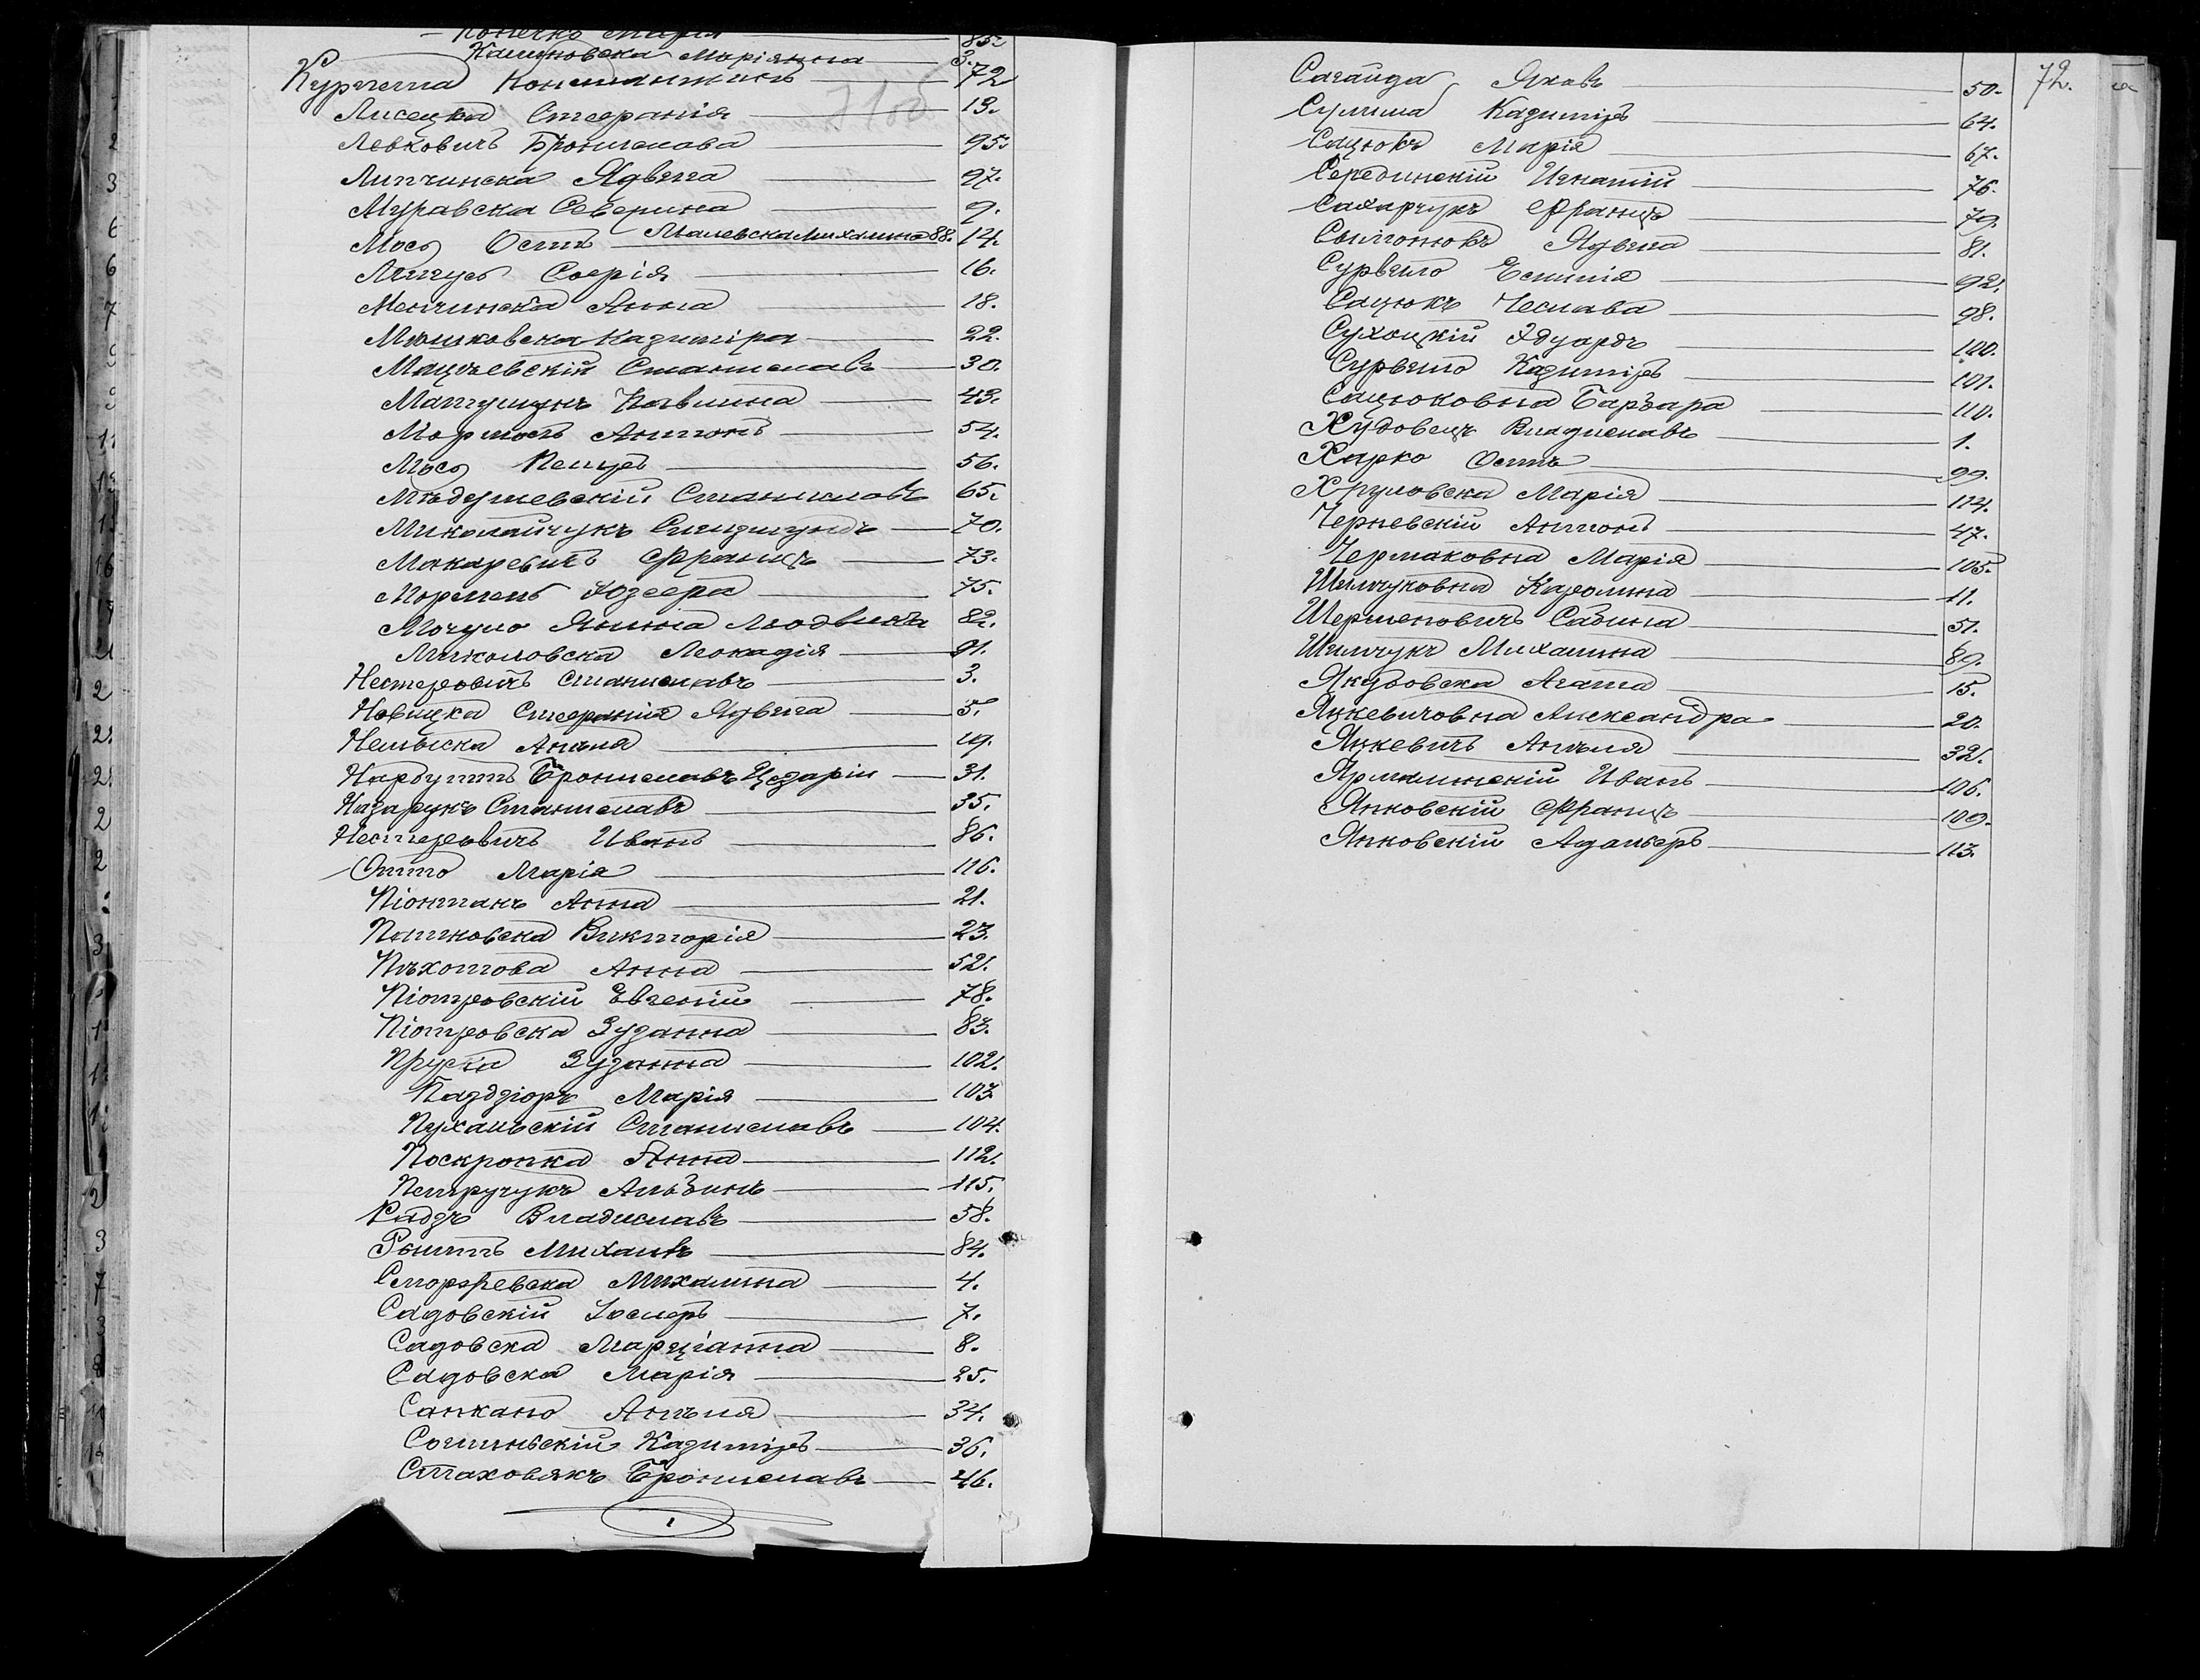 Конечко Марія 85.
Калиновска Маріянна 3.
Курчета Константинъ 72
Лисецка Стефранія 13.
Левковичъ Брониславa 95.
Липчинска Ядвига 97.
Муравска Северина 9.
Мось Осипъ 14.
Малевска Михалина 88.
Софрія 16.
Менчинска Анна 18.
Машковска Казимира 22.
Мацѣевскій Станиславъ 30.
Матушукъ Павлина 43.
Антонъ 54.
Мось Петръ 56.
Мѣдушевскій Станиславъ 65.
Миколайчукъ Сигизмундъ 70.
Макаревичъ Францъ 73.
Юзефа 75.
Мочуло Янина Людвика 82.
Миколовска Леокадія 91.
Нестеровичъ Станиславъ 3.
Новицка Стефранія Ядвига 5.
Анѣля 19.
Нарбуттъ Брониславъ Цезарій 31.
Назарукъ Станиславъ 35.
Нестеровичъ Иванъ 86.
Отто Марія 116.
Піонтакъ Анна 21.
Пашковска Викторія 23.
Пѣхотова Анна 52.
Піотровскій Евгеній 78.
Піотровска Зузанна 83.
Пруска Зузанна 102.
Паздзіоръ Марія 103.
Пухальскій Станиславъ 104.
Поскропка Анна 112.
Петручукъ Альбинъ 115.
Радзъ Владиславъ 58.
Михаилъ 84.
Михалина 4.
Садовскій Іосифръ 7.
Садовска Марціанна 8.
Садовска Марія 25.
Анѣля 34.
Казиміръ 36.
Стаховякъ Брониславъ 46.
72.
Сагайда Яковъ 50.
Сулима Казиміръ 64.
Сацюкъ Марія 67.
Серединскій Игнатій 76.
Сахарчукъ Францъ 79.
Ядвига 81.
Сурвило Емилія 92.
Сацюкъ Чеслава 98.
Сухоцкій Эдуардъ 100.
Сурвило Казиміръ 101.
Сацюковна Барбара 110.
Худовецъ Владиславъ 1.
Харко Осипъ 99.
Марія 114.
Черневскій Антонъ 47.
Чермаковна Марія 105.
Шимчуковна Каролина 11.
Шерменовичъ Сабина 51.
Шимчукъ Михалина 89.
Якубовска Агата 15.
Яцкевичовна Александра 20.
Яцкевичъ Анѣля 32.
Ярмалинскій Иванъ 106.
Янковскій Францъ 109.
Янковскій Адольфръ 113.